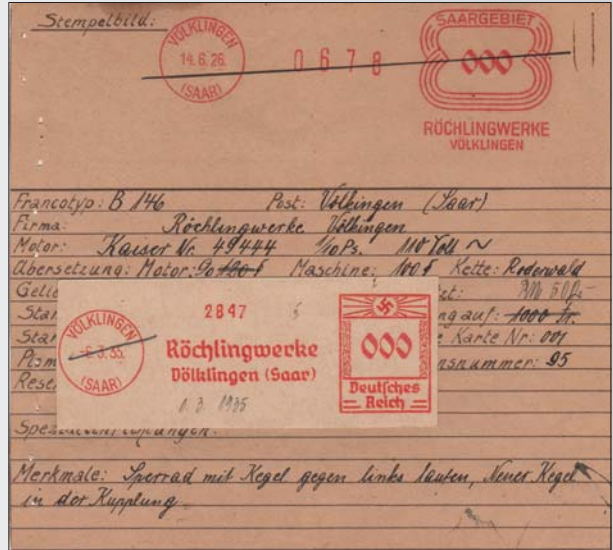 Stempelbild:
VÖLKLINGEN
14.6.26.
(SAAR)
0678
SAARGEBIET
000
RÖCHLINGWERKE
VÖLKLINGEN
Francotyp: B 146 Post: Völklingen (Saar)
Firma: Röchlingwerke Völklingen
Motor: Kaiser Nr. 49444 1/10 Ps. 110 Volt ~
Übersetzung: Motor: 90 120 § Maschine: 100 § Kette: Roderwald
Gelie
tet:
Star
ng auf: 1000 Fr.
Star
e Karte Nr: 001
Plom
nsnummer: 95
Rese
VÖLKLINGEN
-6.3.35.
(SAAR)
2847
Röchlingwerke
Völklingen (Saar)
1. 3. 1935
000
Deutsches
Reich
Merkmale: Sperrad mit Kegel gegen links laufen, Neuer Kegel
in der Kupplung